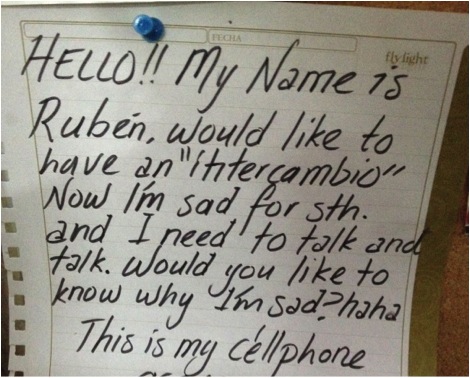 FECHA
flylight
HELLO!! My Name is
Rubén, would like to
have an "intercambio"
Now I'm sad for sth.
and I need to talk and
talk. Would you like to
know why I'm sad? haha
This is my cellphone